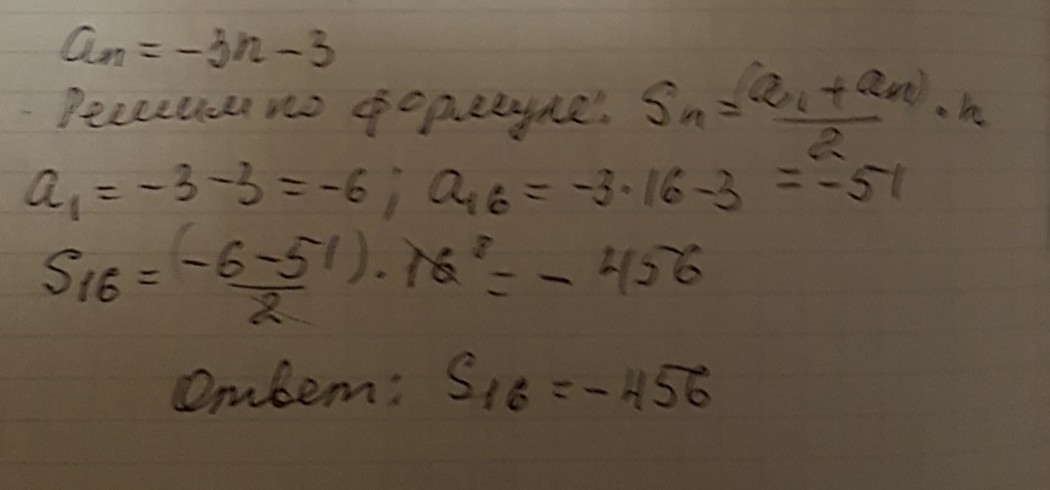 aₙ = -3n - 3
Решим по формуле: Sₙ = (a₁ + aₙ)/2 · n
a₁ = -3 - 3 = -6; a₁₆ = -3·16 - 3 = -51
S₁₆ = (-6 - 51)/2 · 16 ⁸ = - 456
Ответ: S₁₆ = -456